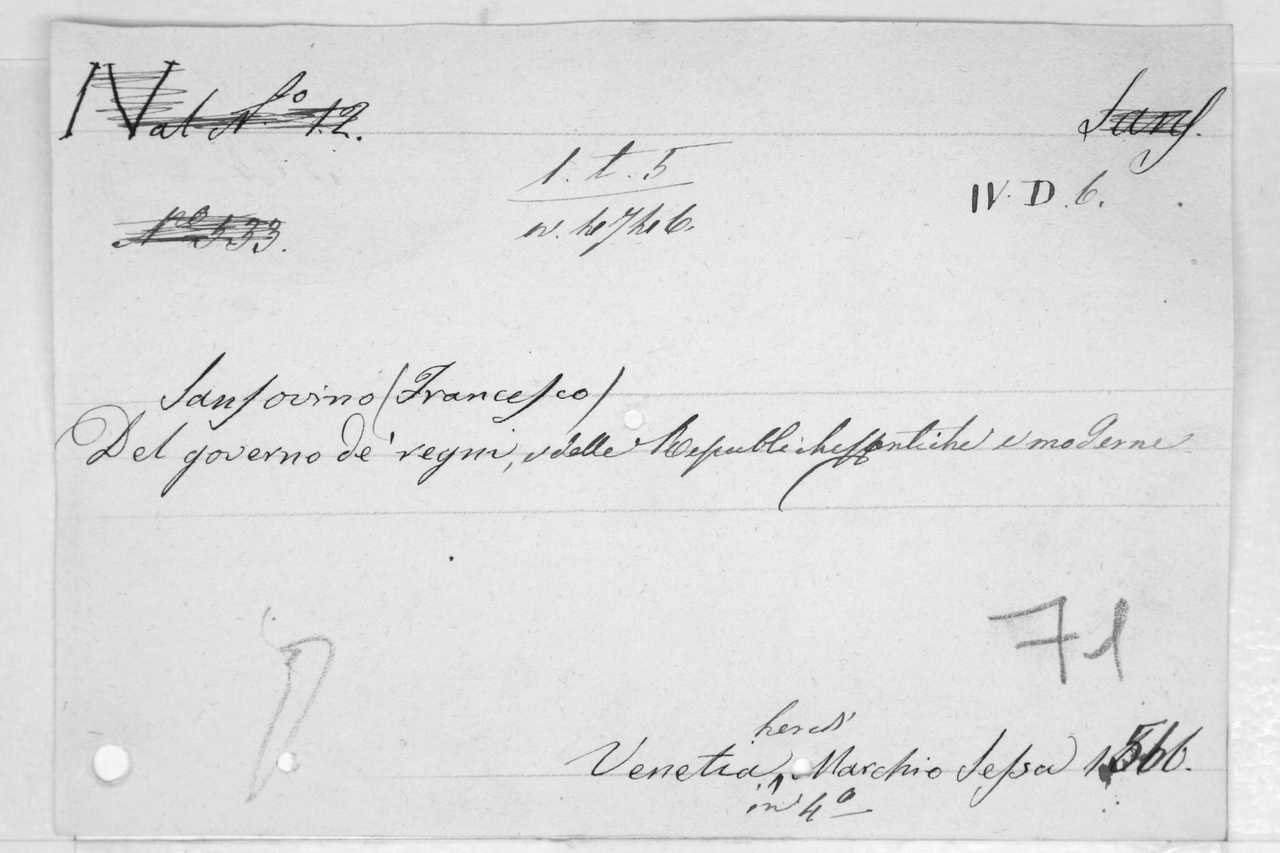 Nat Nº 12.
Sans.
1. t. 5
IV. D. 6.
Nro 533.
Sansovino (Francesco)
Del governo de' regni, e delle Republiche antiche e moderne
71
heredi
Venetia, Marchio Sessa 1566.
in 4º